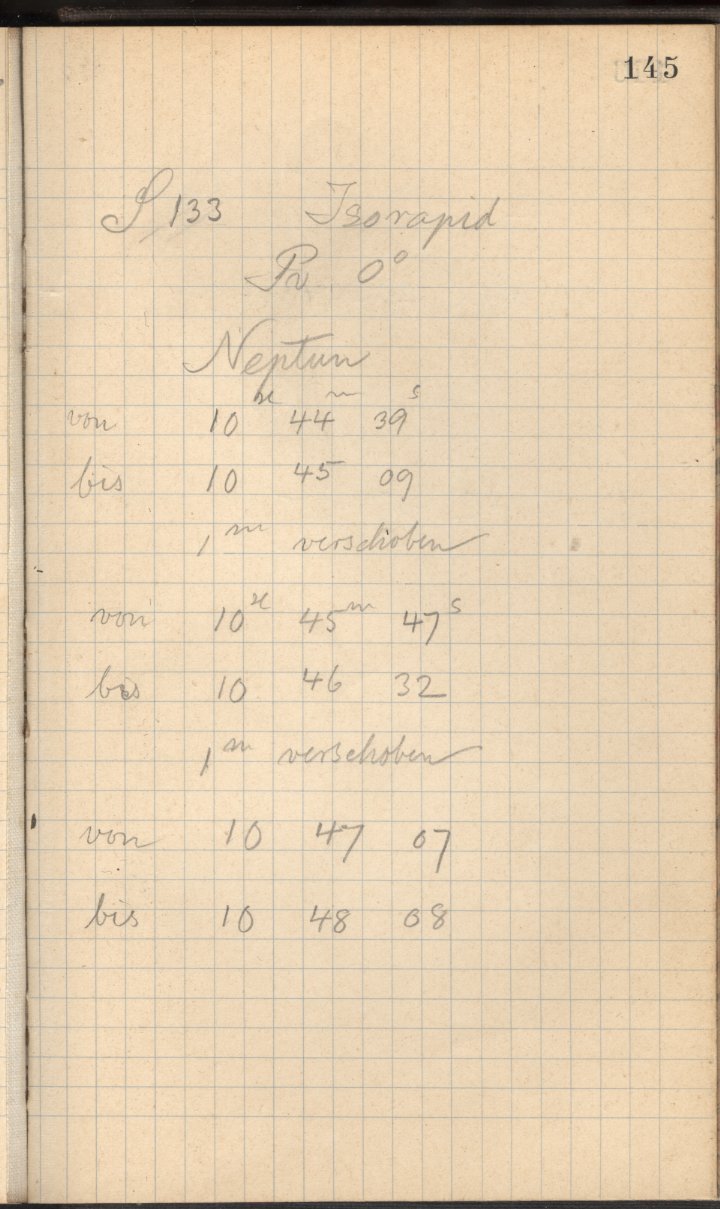 145
S 133 Isorapid
Pr. 0°
Neptun
von 10 h 44 m 39 s
bis 10 45 09
1 m verschoben
von 10 h 45 m 47 s
bis 10 46 32
1 m verschoben
von 10 47 07
bis 10 48 08